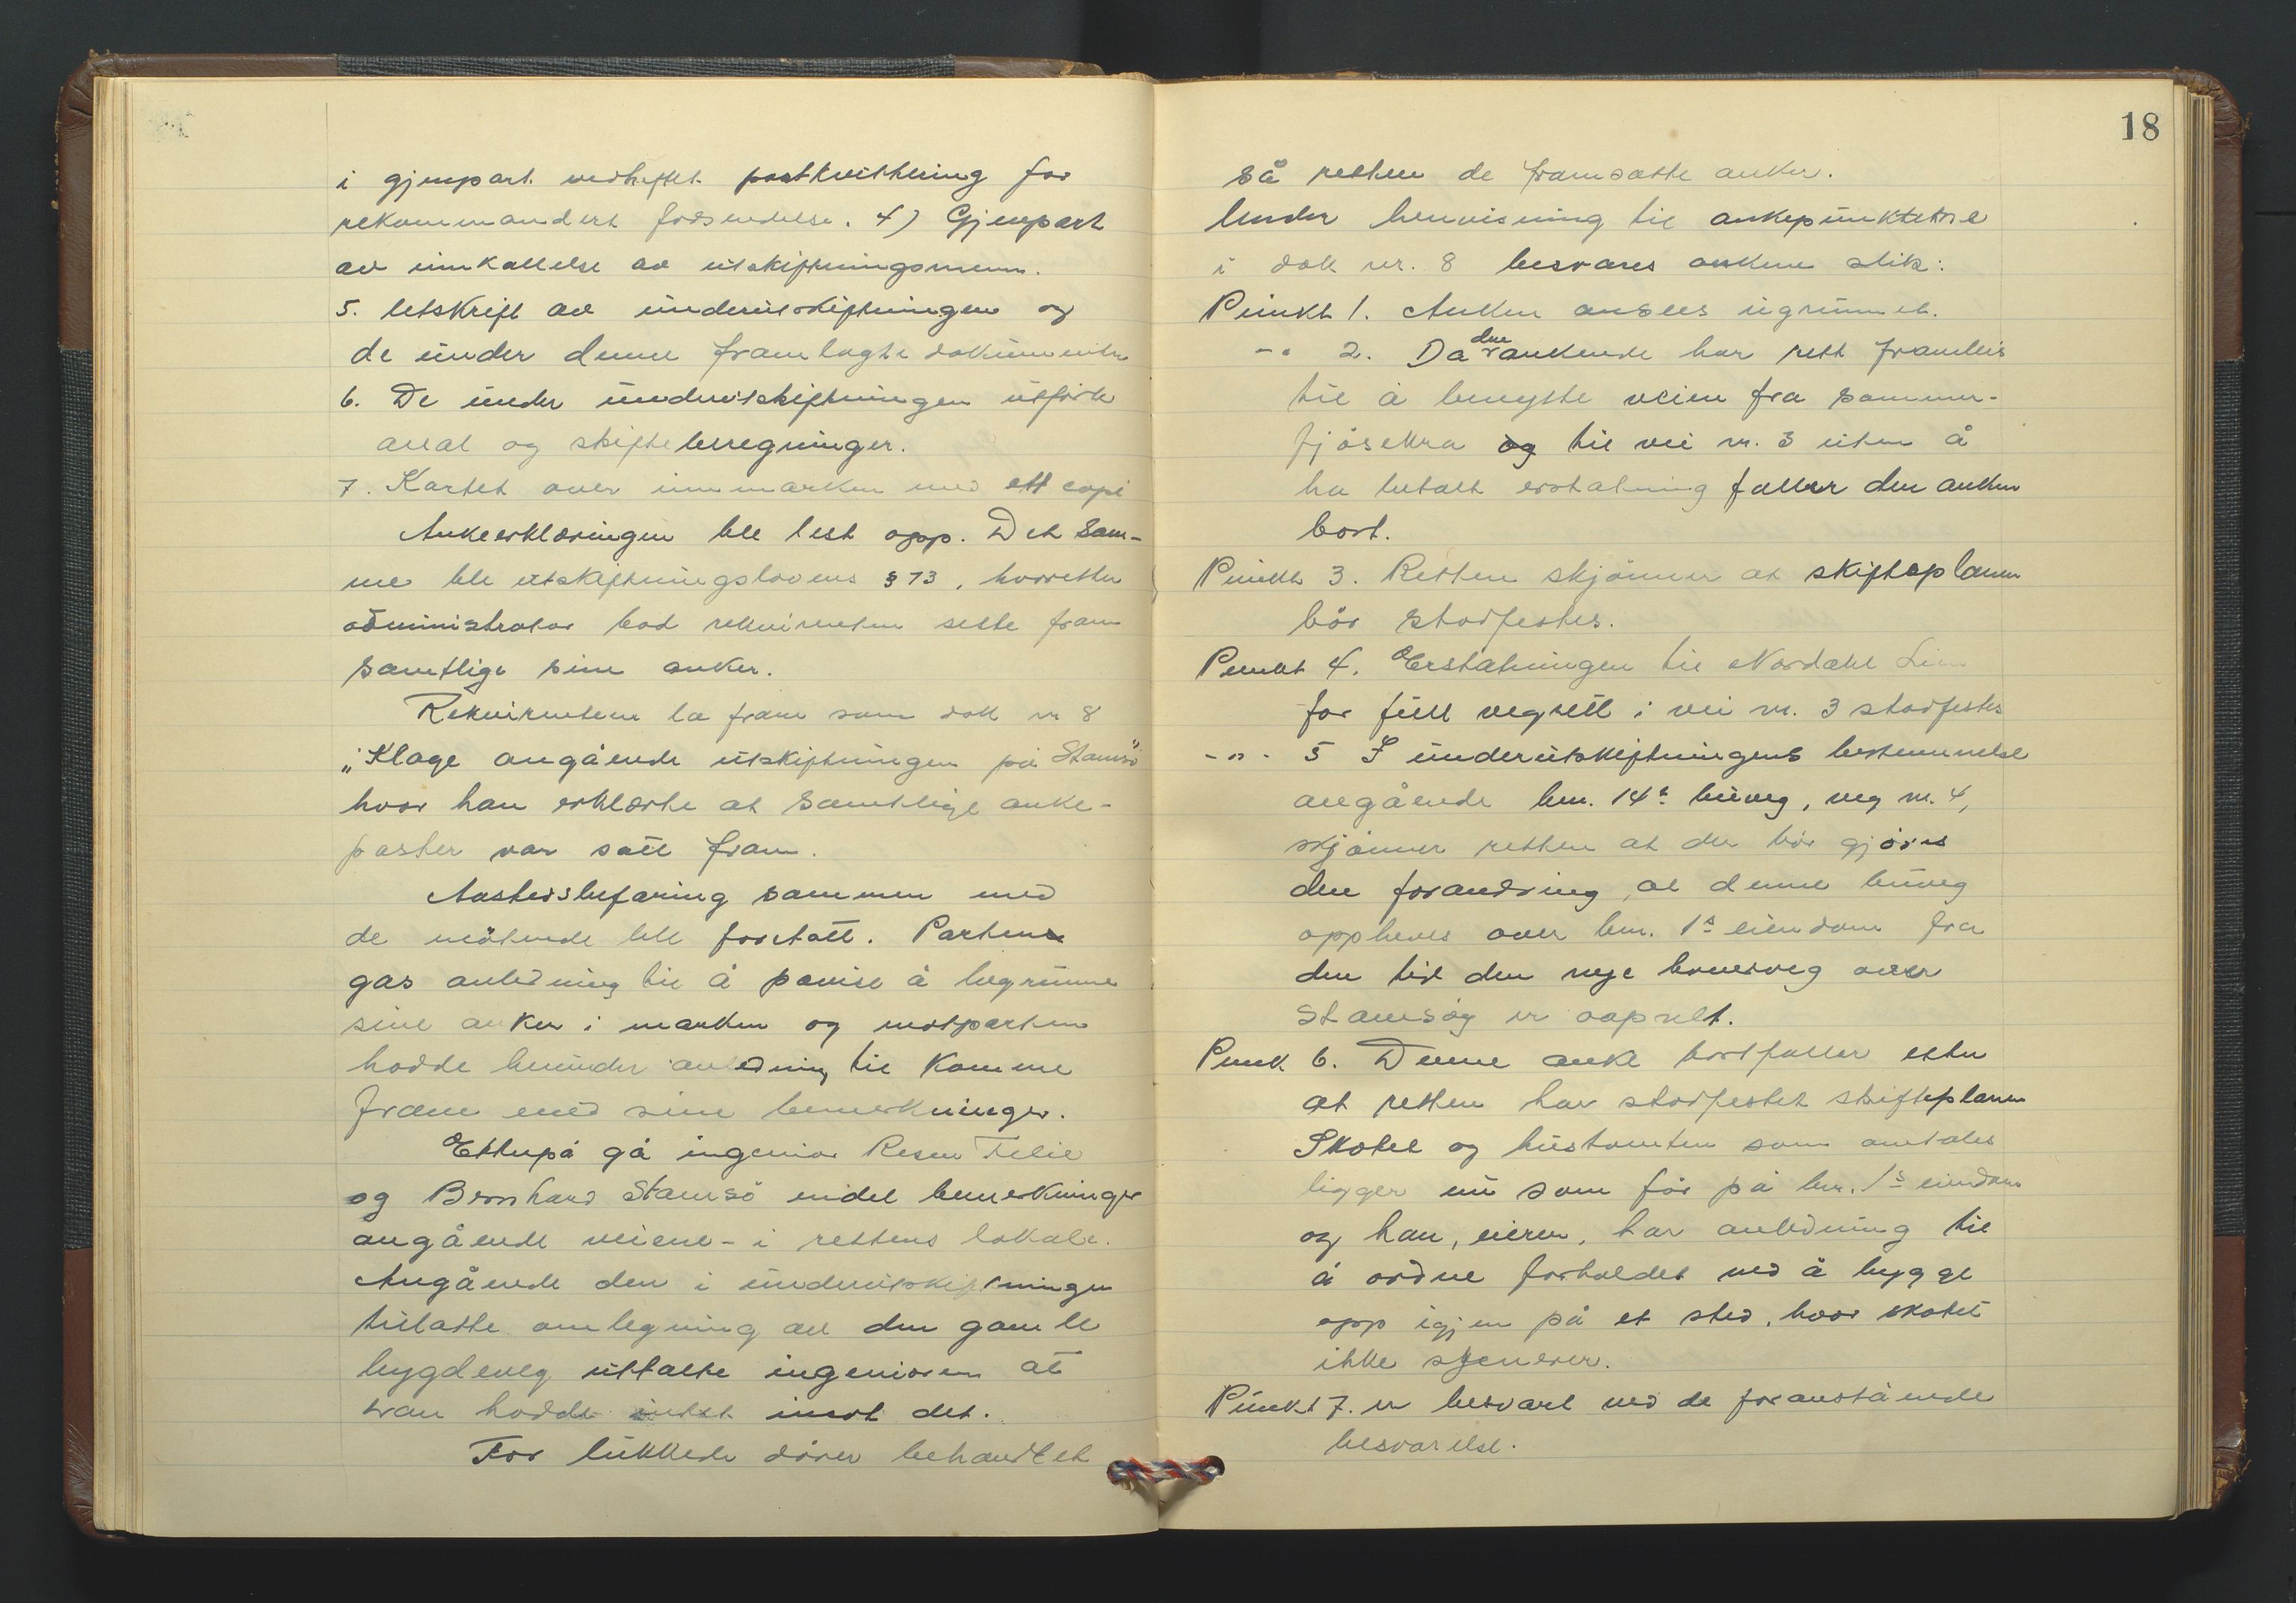 i gjenpart vedheftet postkvittering for
rekommandert forsendelse. 4) Gjenpart
av innkallelse av utskiftningsmenn.
5. Utskrift av underutskiftningen og
de under denne framlagte dokumenter
6. De under underutskiftningen utförte
areal og skifteberegninger.
7. Kartet over innmarken med ett copi
Ankeerklæringen ble lest opp. Det sam-
me ble utskiftningslovens § 73, hvoretter
administrator bad rekvirenten sette fram
samtlige sine anker.
Rekvirenten la fram som dok nr 8
„Klage angående utskiftningen på Stamsö"
hvor han erklærte at samtlige anke-
poster var satt fram.
Aastedsbefaring sammen med
de mötende ble foretatt. Partene
gas anledning til å påvise å begrunne
sine anker i marken og motparten
hadde herunder anledning til komme
fram med sine bemerkninger.
Etterpå ga ingeniör Resen Fellie
og Bernhard Stamsö endel bemerkninger
angående veiene - i rettens lokale.
Angående den i underutskiftningen
tillatte omlegning av den gamle
bygdeveg uttalte ingeniören at
han hadde intet imot det.
For lukkede dörer behandlet
18
så retten de framsatte anker.
Under henvisning til ankepunktene
i dok nr. 8 besvares ankene slik:
Punkt 1. Anken ansees ugrunnet.
-"- 2. Da den ankende har rett framleis
til å benytte veien fra sommer-
fjösekra og til vei nr. 3 uten å
ha betalt erstatning faller den anken
bort.
Punkt 3. Retten skjönner at skifteplanen
bör stadfestes.
Punkt 4. Erstatningen til Nordahl Lien
for full vegrett i vei nr. 3 stadfestes
-"- 5 I underutskiftningens bestemmelse
angående bnr. 14s buveg, veg nr. 4,
skjönner retten at der bör gjöres
den forandring, at denne buveg
oppheves over bnr. 1s eiendom fra
den tid den nye hovedveg over
Stamsöy er oapnet.
Punk 6. Denne anke bortfaller etter
at retten har stadfestet skifteplanen
Skotet og hustomten som omtales
ligger nu som för på bnr. 1s eiendom
og han, eieren, har anledning til
å ordne forholdet ved å bygge
opp igjen på et sted, hvor skotet
ikke sjenerer.
Punkt 7. er besvart ved de foranstående
besvarelse.